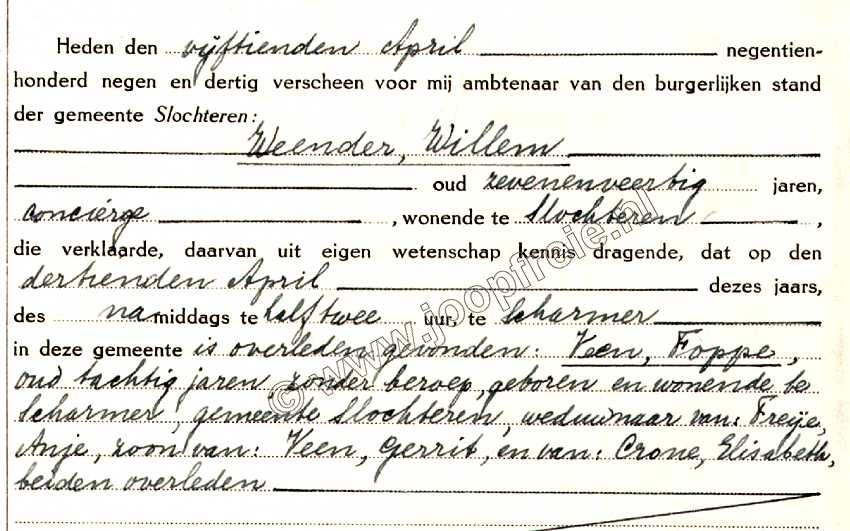 Heden den vijftienden April negentien-
honderd negen en dertig verscheen voor mij ambtenaar van den burgerlijken stand
der gemeente Slochteren:
Weender, Willem
oud zevenenveertig jaren,
conciërge, wonende te Slochteren,
die verklaarde, daarvan uit eigen wetenschap kennis dragende, dat op den
dertienden April dezes jaars,
des namiddags te half twee uur, te Scharmer
in deze gemeente is overleden gevonden: Veen, Foppe,
oud tachtig jaren, zonder beroep, geboren en wonende te
Scharmer, gemeente Slochteren, weduwnaar van: Freije,
Anje, zoon van: Veen, Gerrit, en van: Crone, Elisabeth,
beiden overleden
© www.joopfreie.nl